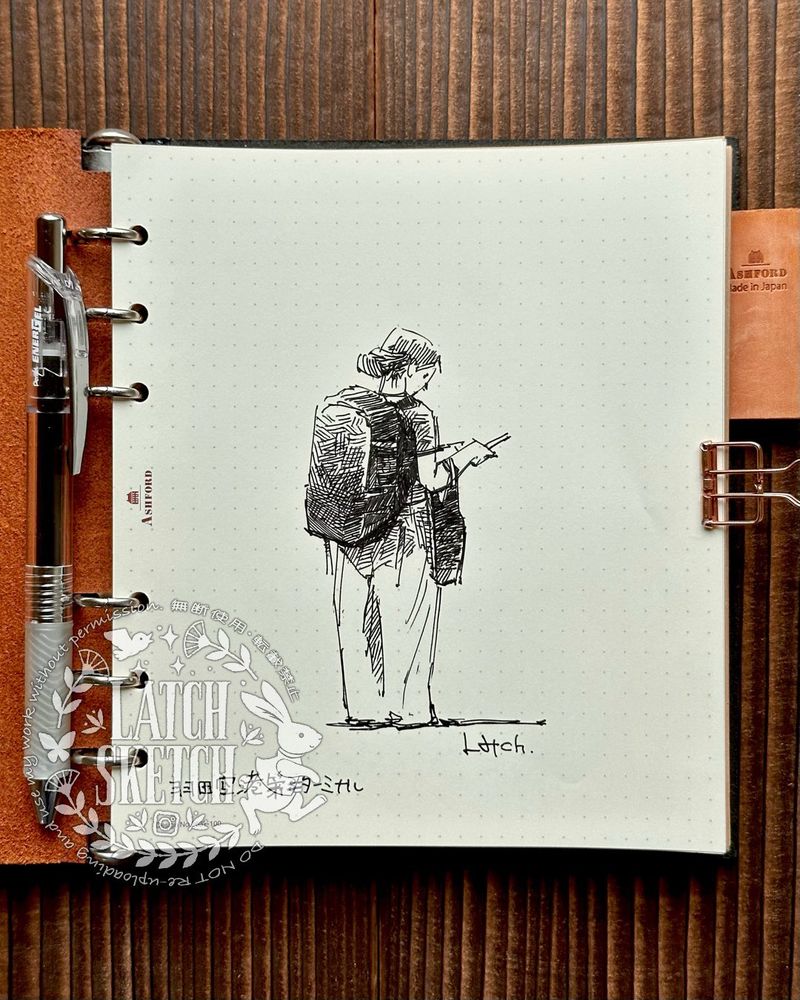 ASHFORD
Made in Japan
PENTEL ENERGEL
ASHFORD
Latch.
羽田空港第2ターミナル
無断使用・転載禁止
LATCH
SKETCH
DO NOT Re-uploading and use my work without permission.